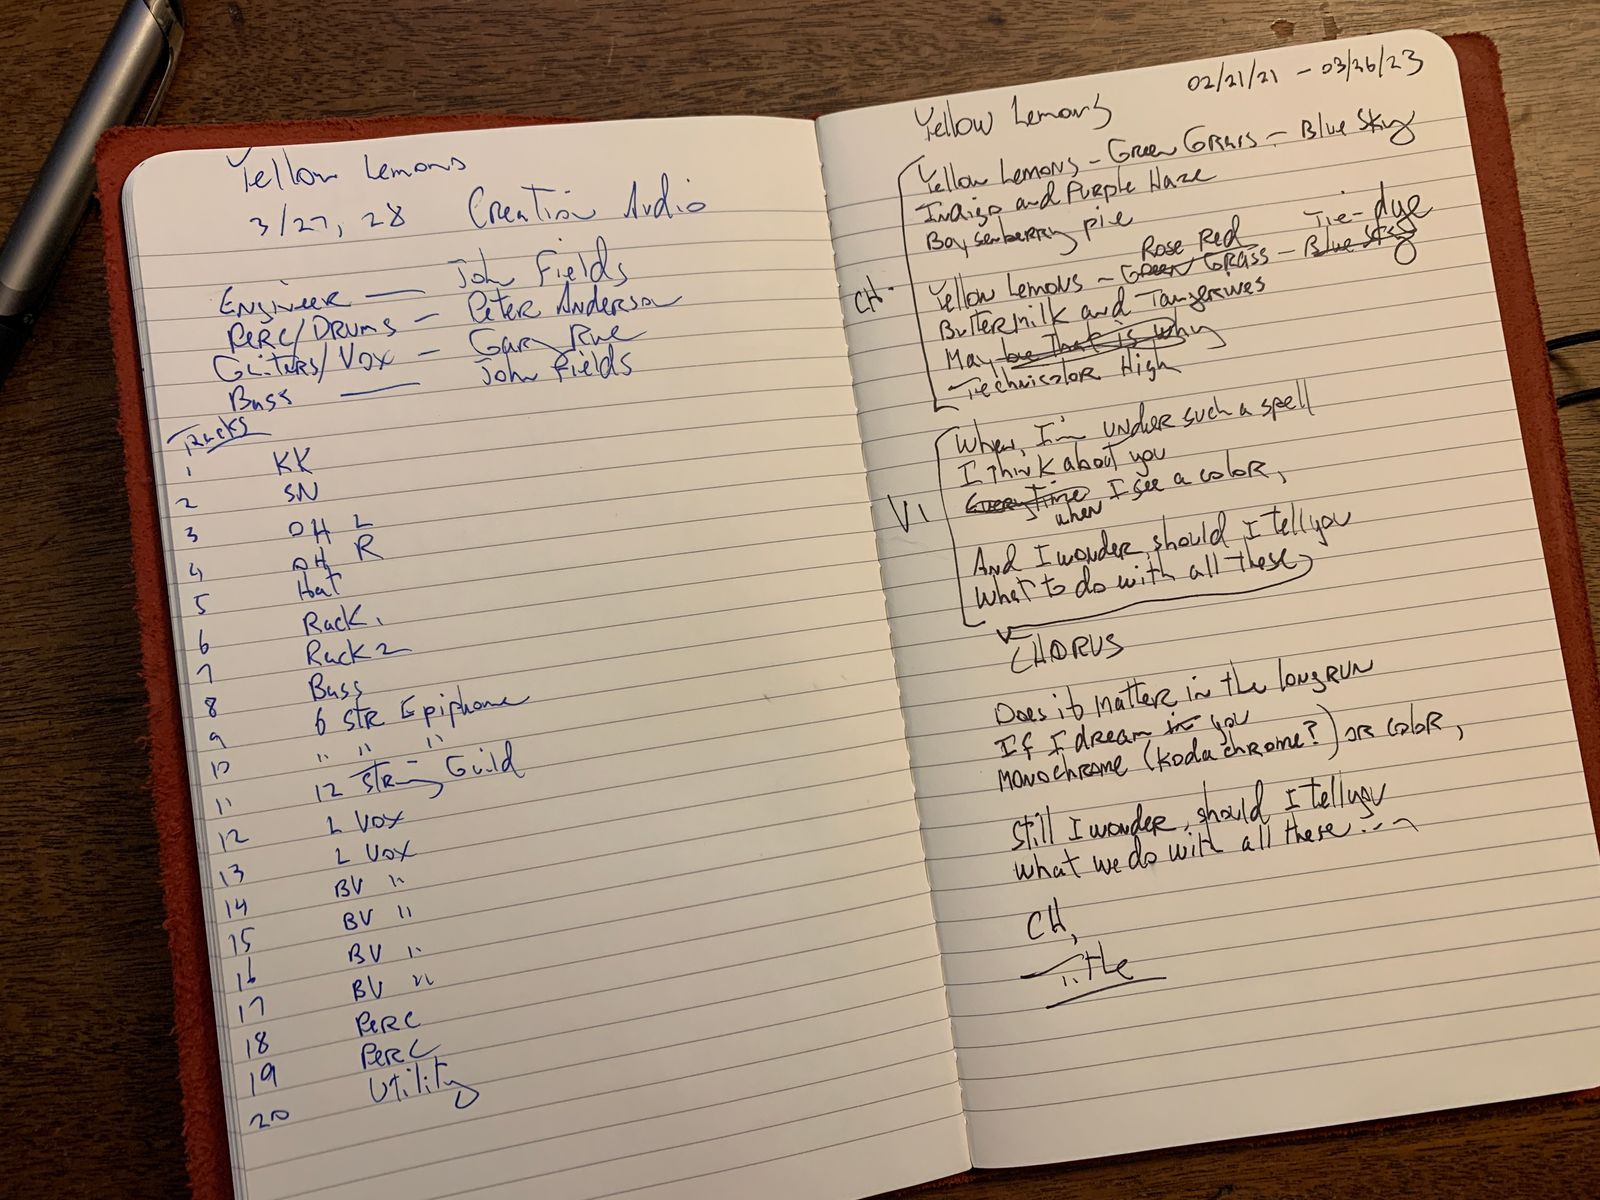 Yellow Lemons
3/27, 28 Creation Audio
Engineer — John Fields
Perc/Drums — Peter Anderson
Guitars/Vox — Gary Rue
Bass — John Fields
Tracks
1 KK
2 SN
3 OH L
4 OH R
5 Hat
6 Rack 1
7 Rack 2
8 Bass
9 6 STR Epiphone
10 " " "
11 12 String Guild
12 L VOX
13 L VOX
14 BV "
15 BV "
16 BV "
17 BV "
18 PERC
19 PERC
20 Utility
02/21/21 - 03/26/23
Yellow Lemons
Yellow Lemons - Green Grass - Blue Sky
Indigo and Purple Haze
Boysenberry pie
Rose Red Tie-dye
CH. Yellow Lemons - Green Grass - Blue Sky
Buttermilk and Tangerines
May be that is why
Technicolor High
When I'm under such a spell
I think about you
V1 Every Time when I see a color,
And I wonder, should I tell you
What to do with all these
CHORUS
Does it matter in the long run
If I dream in you
Monochrome (Kodachrome?) or color,
Still I wonder, should I tell you
what we do with all these...
CH,
Title